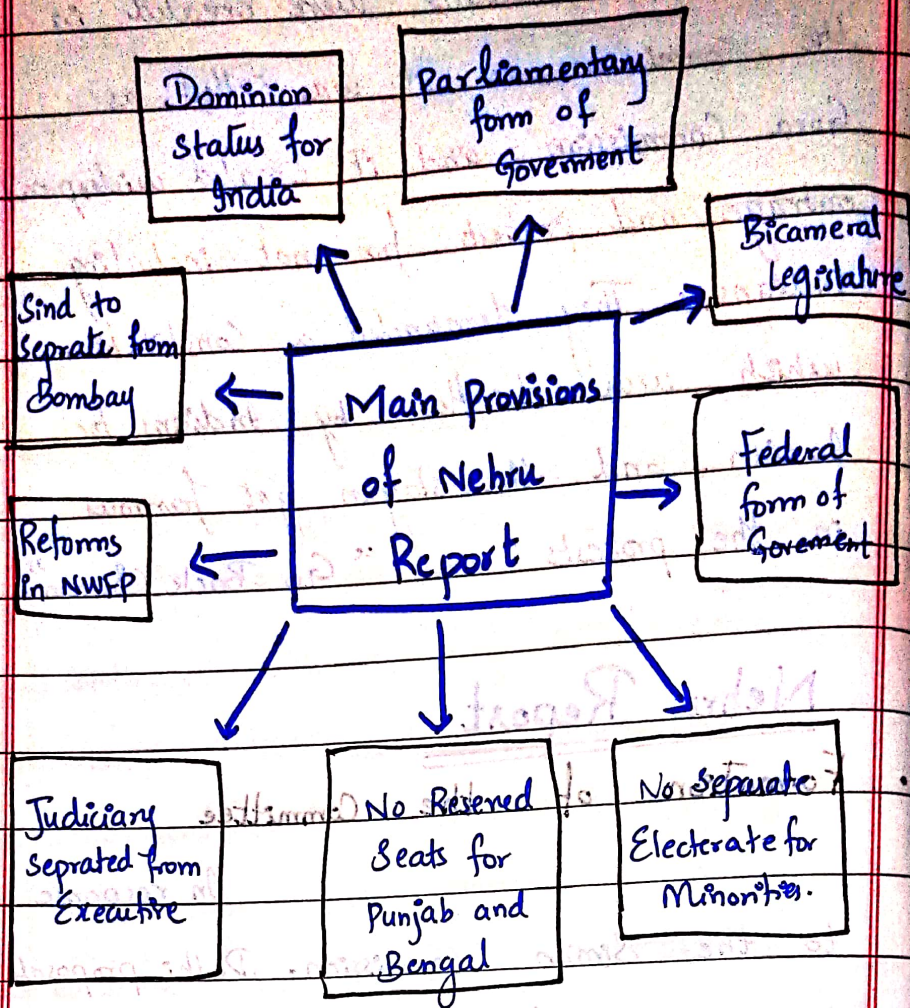 Dominion
Status for
India
Parliamentary
form of
Goverment
Bicameral
Legislature
Sind to
Seprate from
Bombay
Main Provisions
of Nehru
Report
Federal
form of
Goverment
Reforms
in NWFP
Judiciary
Seprated from
Executive
No Reserved
Seats for
Punjab and
Bengal
No Separate
Electerate for
Minorities.
Nehru Report